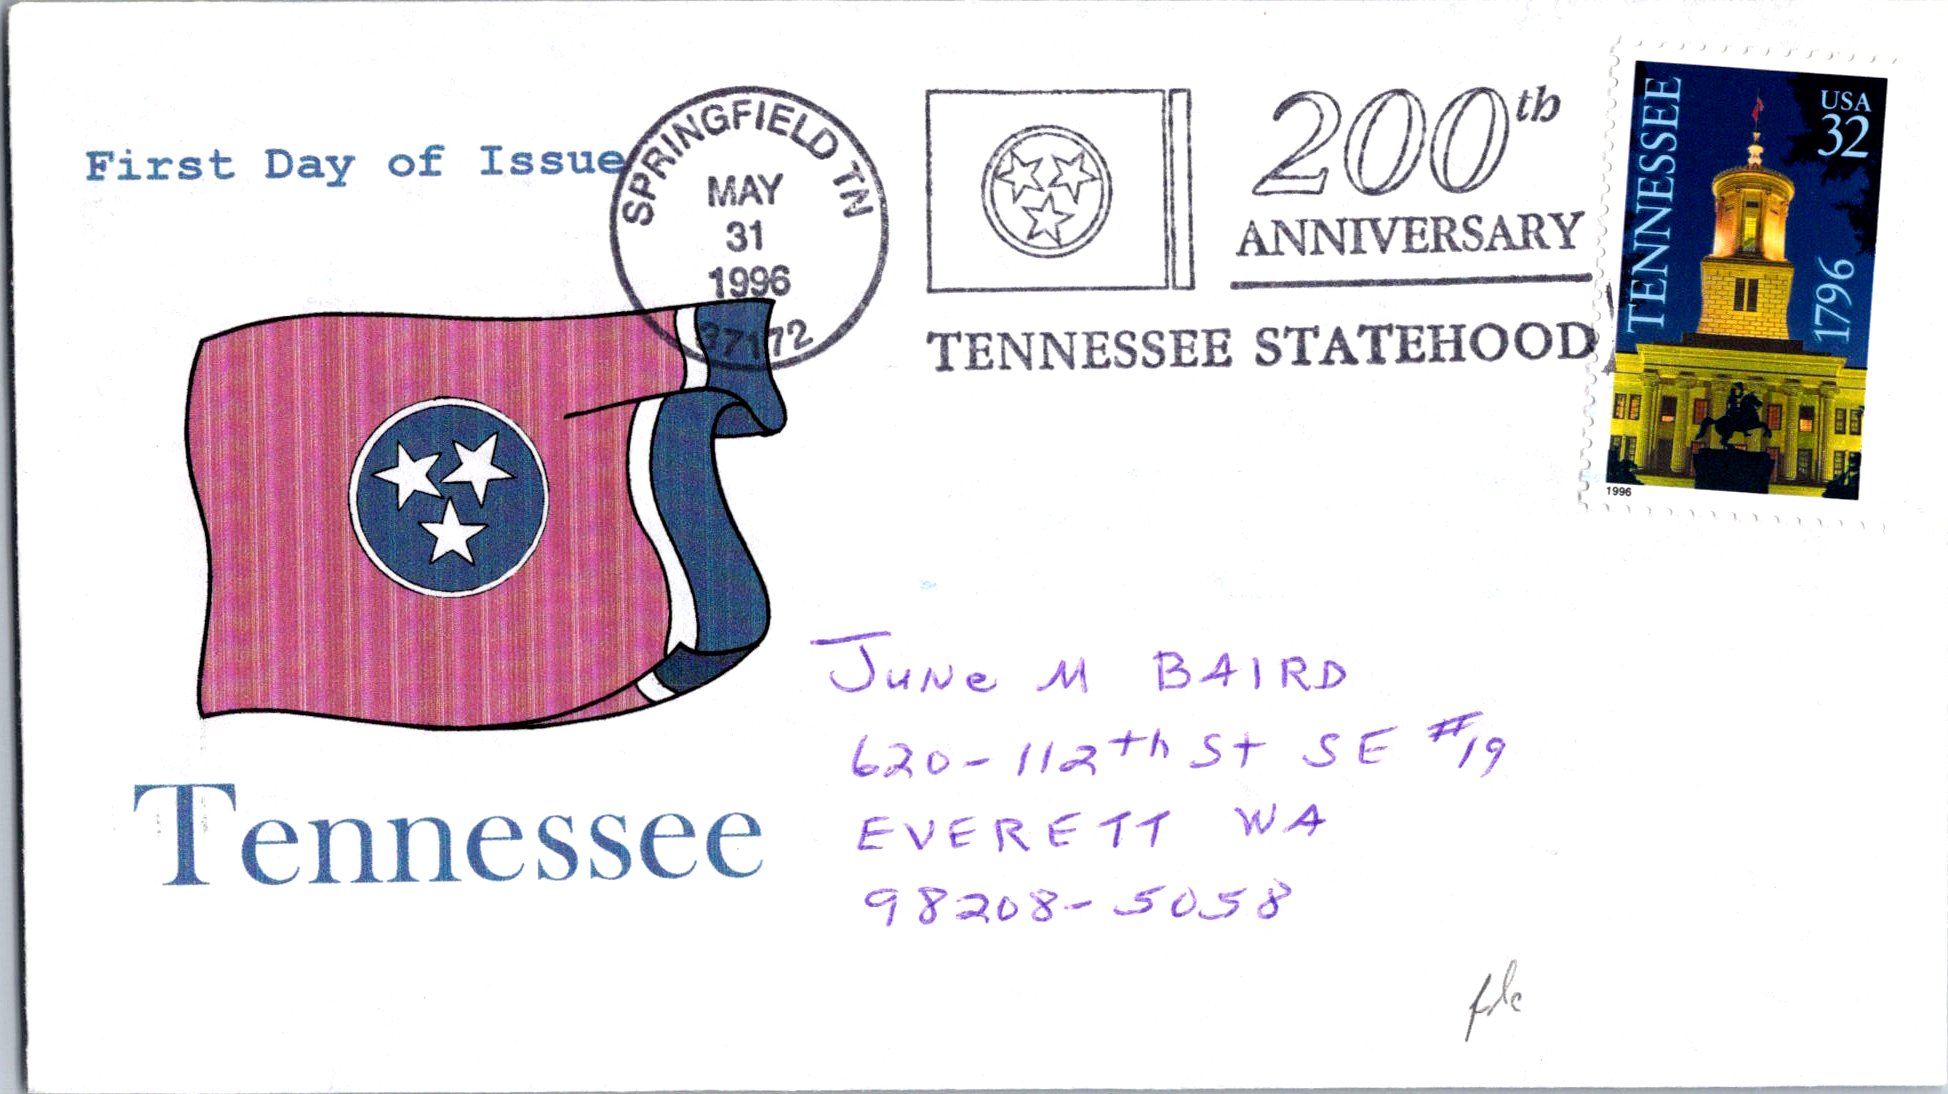 First Day of Issue
SPRINGFIELD TN
MAY
31
1996
37172
200th
ANNIVERSARY
TENNESSEE STATEHOOD
TENNESSEE
USA
32
1796
1996
Tennessee
June M BAIRD
620-112th St SE #19
EVERETT WA
98208-5058